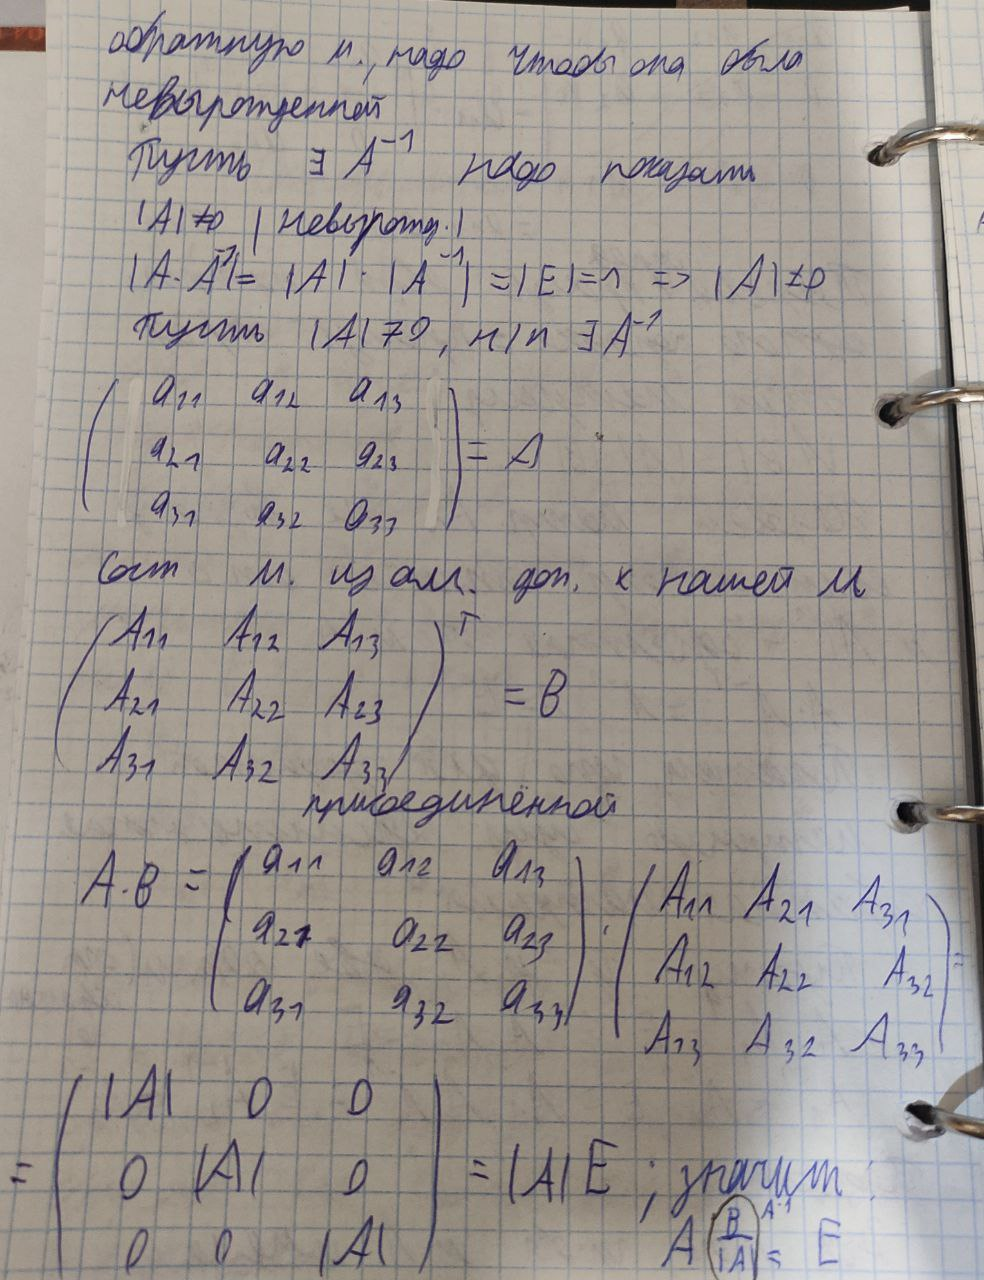 обратную м., надо чтобы она была
невырожденной
Пусть ∃ A⁻¹ надо показать
|A|≠0 | невырожд. |
|A·A⁻¹|= |A|·|A⁻¹| =|E|=1 => |A|≠0
Пусть |A|≠0, н/п ∃A⁻¹
a₁₁ a₁₂ a₁₃
a₂₁ a₂₂ a₂₃ = A
a₃₁ a₃₂ a₃₃
Сост м. из ал. доп. к нашей м
A₁₁ A₁₂ A₁₃ T
A₂₁ A₂₂ A₂₃ = B
A₃₁ A₃₂ A₃₃
присоединённой
A·B = ( a₁₁ a₁₂ a₁₃ a₂₁ a₂₂ a₂₃ a₃₁ a₃₂ a₃₃ ) · ( A₁₁ A₂₁ A₃₁ A₁₂ A₂₂ A₃₂ A₁₃ A₃₂ A₃₃ ) =
|A| 0 0
= 0 |A| 0 = |A| E ; значит :
0 0 |A| A B/|A| = E A⁻¹